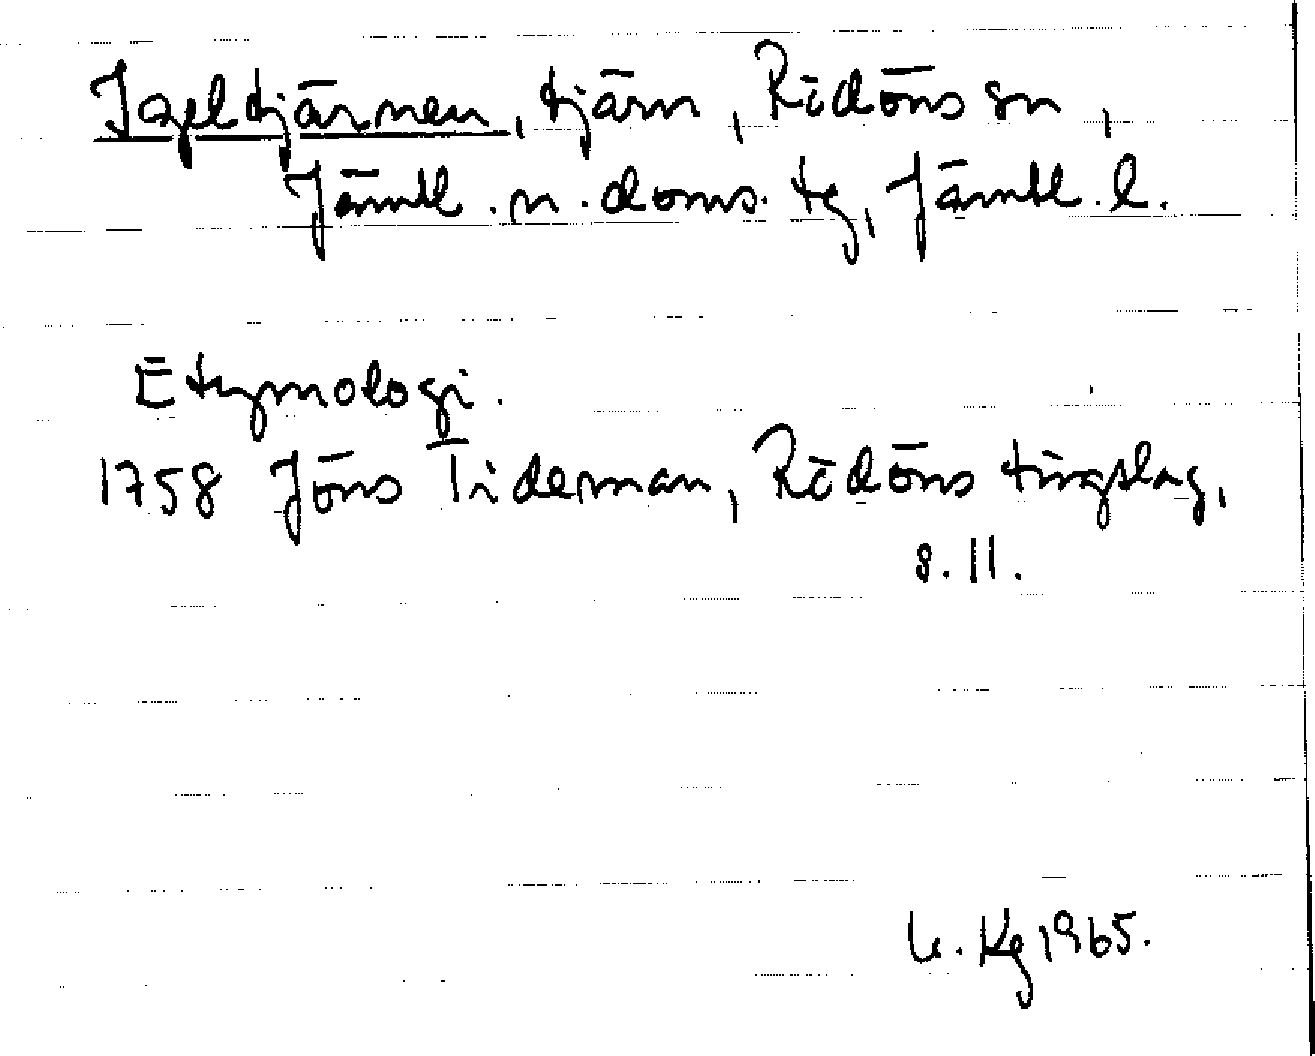 Igeltjärnen, tjärn, Rödöns sn,
Jämtl. n. doms. tg, Jämtl. l.
Etymologi.
1758 Jöns Tideman, Rödöns tingslag,
s. 11.
Kg 1965.